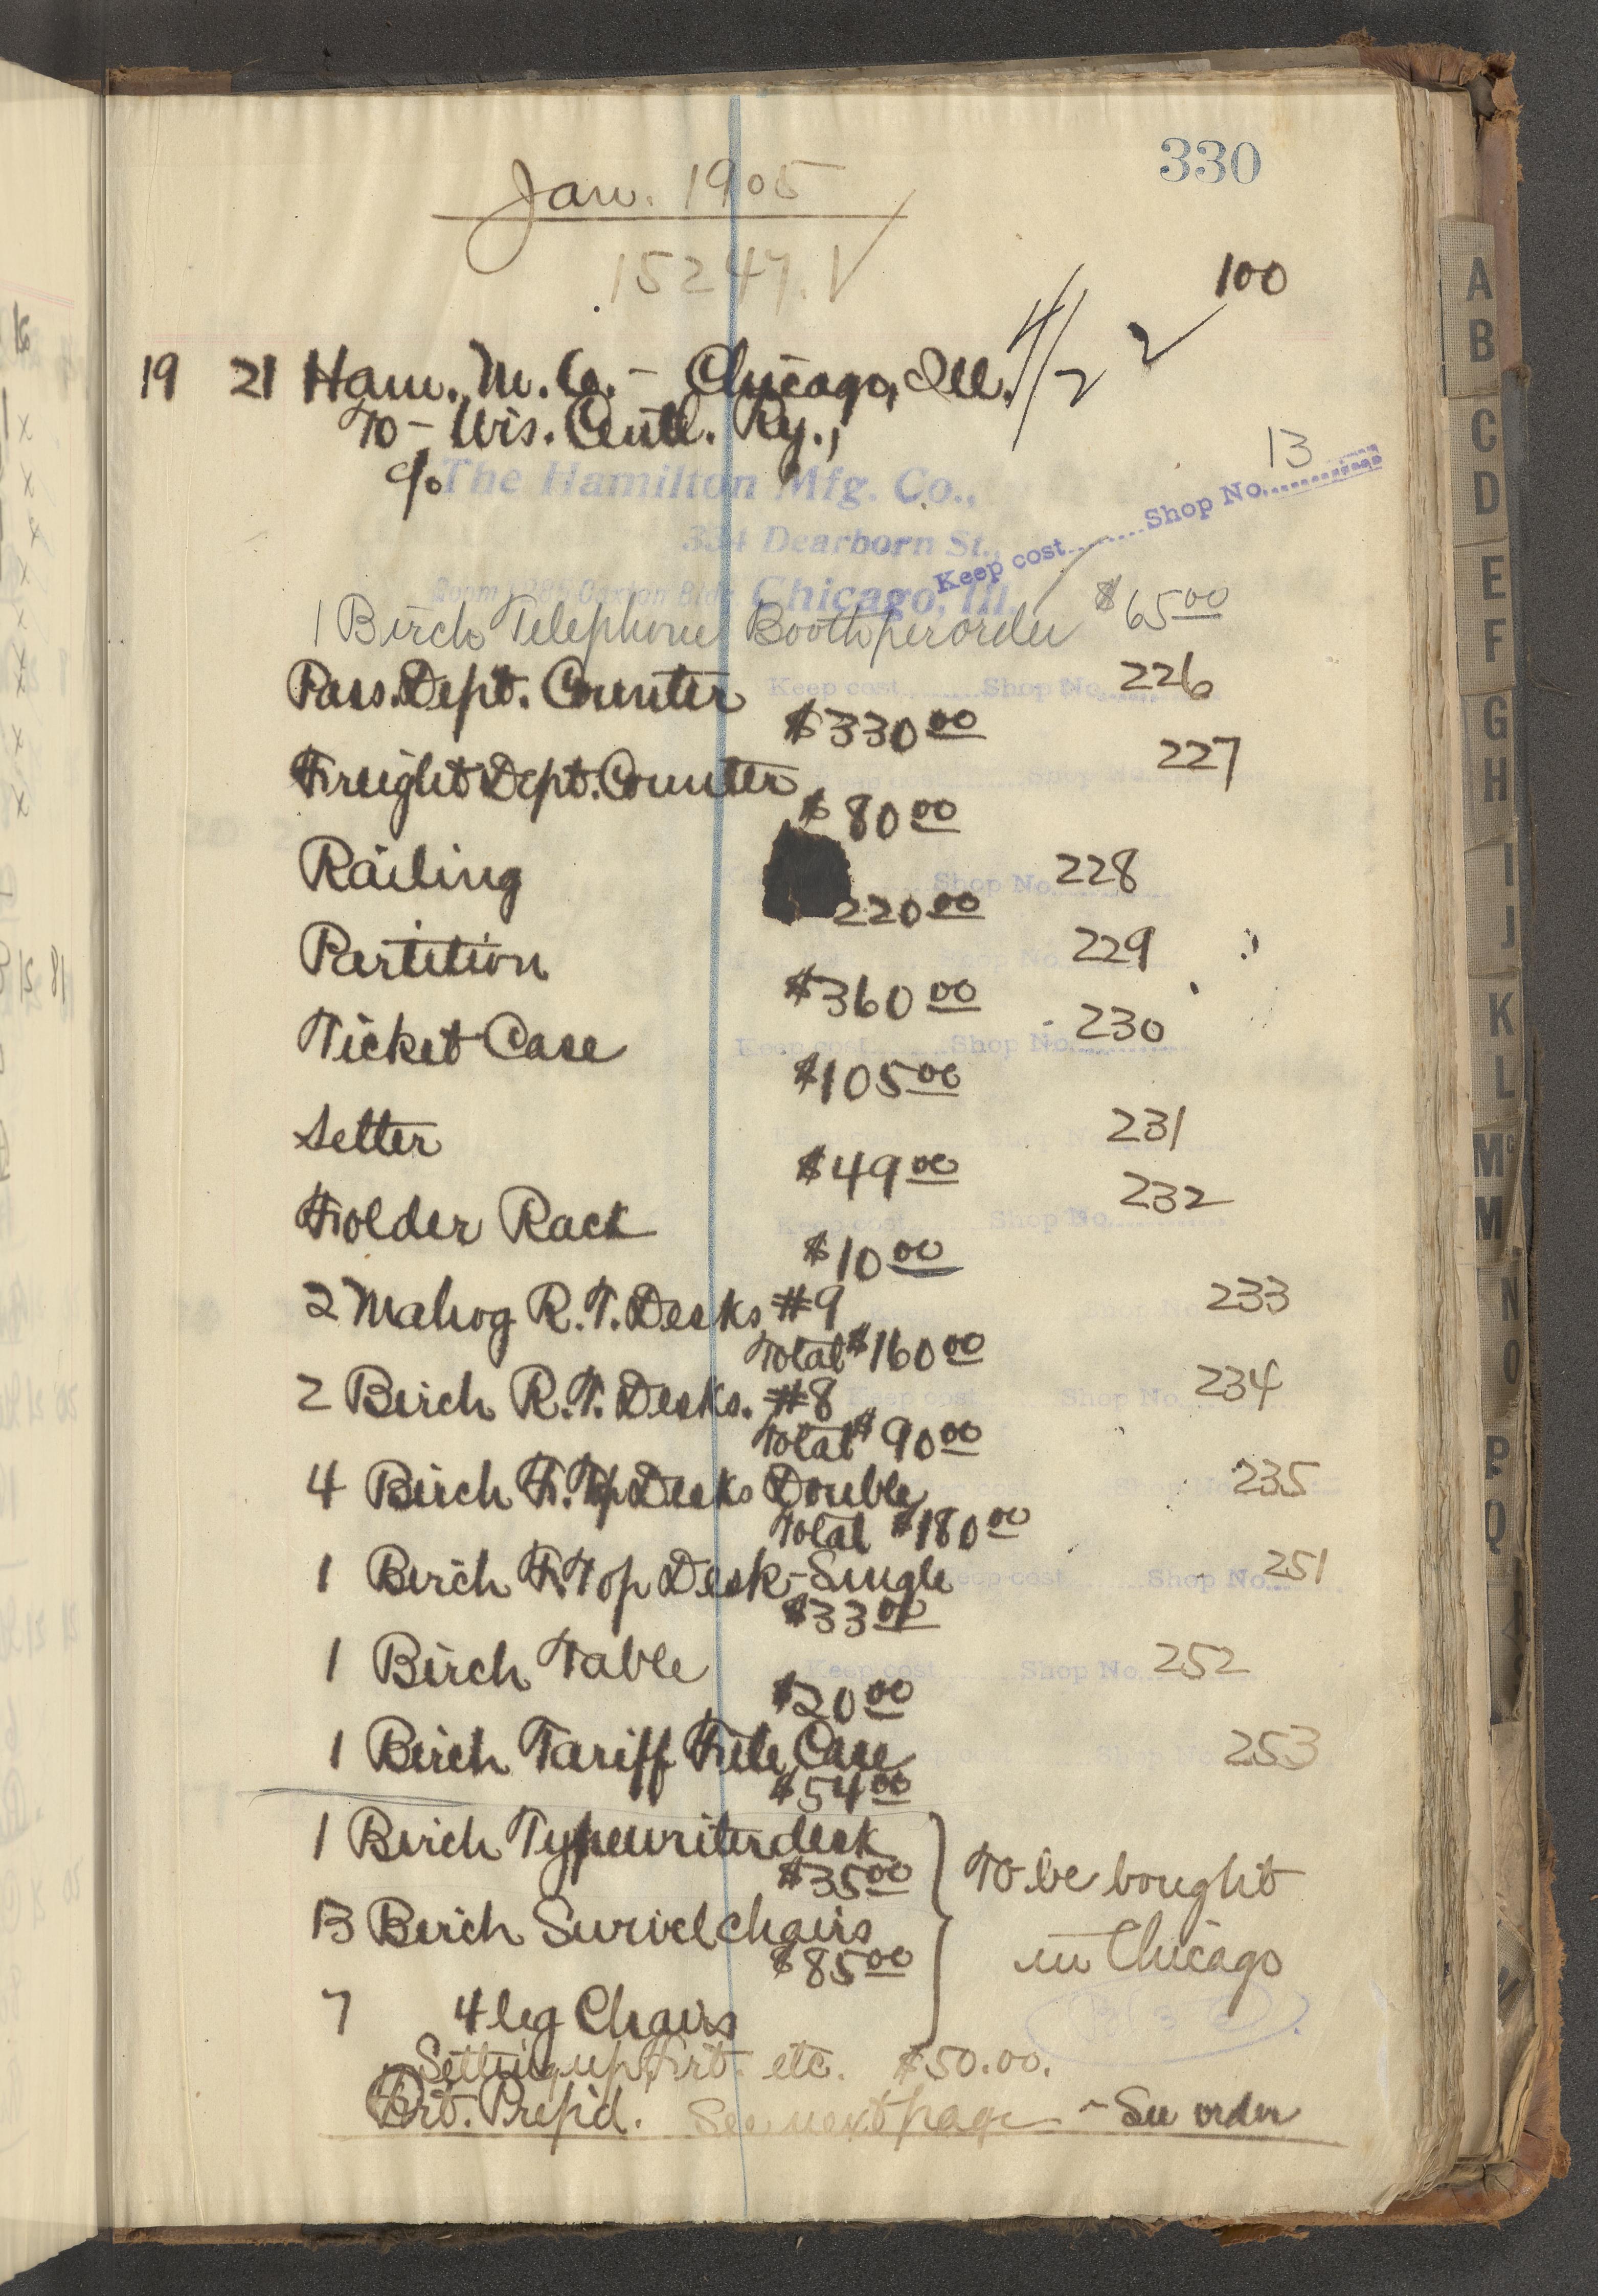 330
Jan. 1905
15247. √
100
4/2 2
19 21 Ham. M. Co. - Chicago, Ill.
To - Wis. Centl. Ry.,
c/o The Hamilton Mfg. Co.,
334 Dearborn St.,
Chicago, Ill.
Keep cost........Shop No. 13
1 Birch Telephone Booth per order $65 00
Pass. Dept. Counter Keep cost........Shop No. 226
$330 00
Freight Dept. Counter 227
$80 00
Railing Shop No. 228
220 00
Partition 229
$360 00
Ticket Case Keep cost........Shop No. 230
$105 00
Setter 231
$49 00
Folder Rack Keep cost........Shop No. 232
$10 00
2 Mahog R. T. Desks #9 233
Total $160 00
2 Birch R. T. Desks. #8 Keep cost Shop No. 234
Total $90 00
4 Birch F. Top Desks Double 235
Total $180 00
1 Birch F. Top Desk - Single Keep cost Shop No. 251
$33 00
1 Birch Table Keep cost Shop No. 252
$20 00
1 Birch Tariff File Case 253
$54 00
1 Birch Typewriter desk
$35 00
To be bought
13 Birch Swivel chairs
$85 00
in Chicago
7 4 leg Chairs
Setting up, Frt. etc. $50.00.
Frt. Prepd. See next page - See order
A
B
C
D
E
F
G
H
I
J
K
L
Mc
M
N
O
P
Q